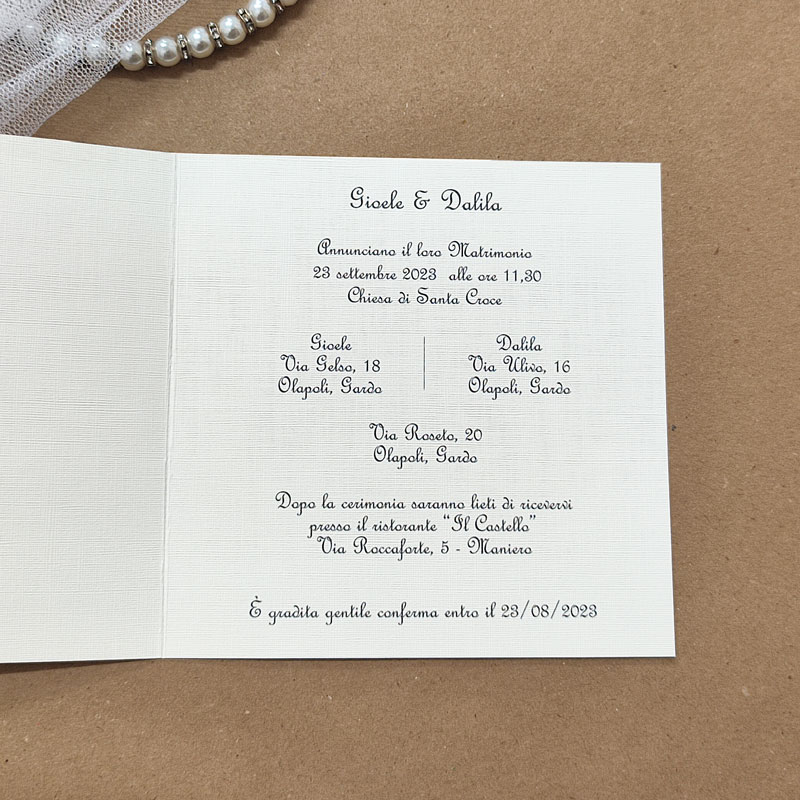 Gioele & Dalila
Annunciano il loro Matrimonio
23 settembre 2023 alle ore 11,30
Chiesa di Santa Croce
Gioele
Via Gelso, 18
Olapoli, Gardo
Dalila
Via Ulivo, 16
Olapoli, Gardo
Via Roseto, 20
Olapoli, Gardo
Dopo la cerimonia saranno lieti di ricevervi
presso il ristorante “Il Castello”
Via Roccaforte, 5 - Maniero
È gradita gentile conferma entro il 23/08/2023